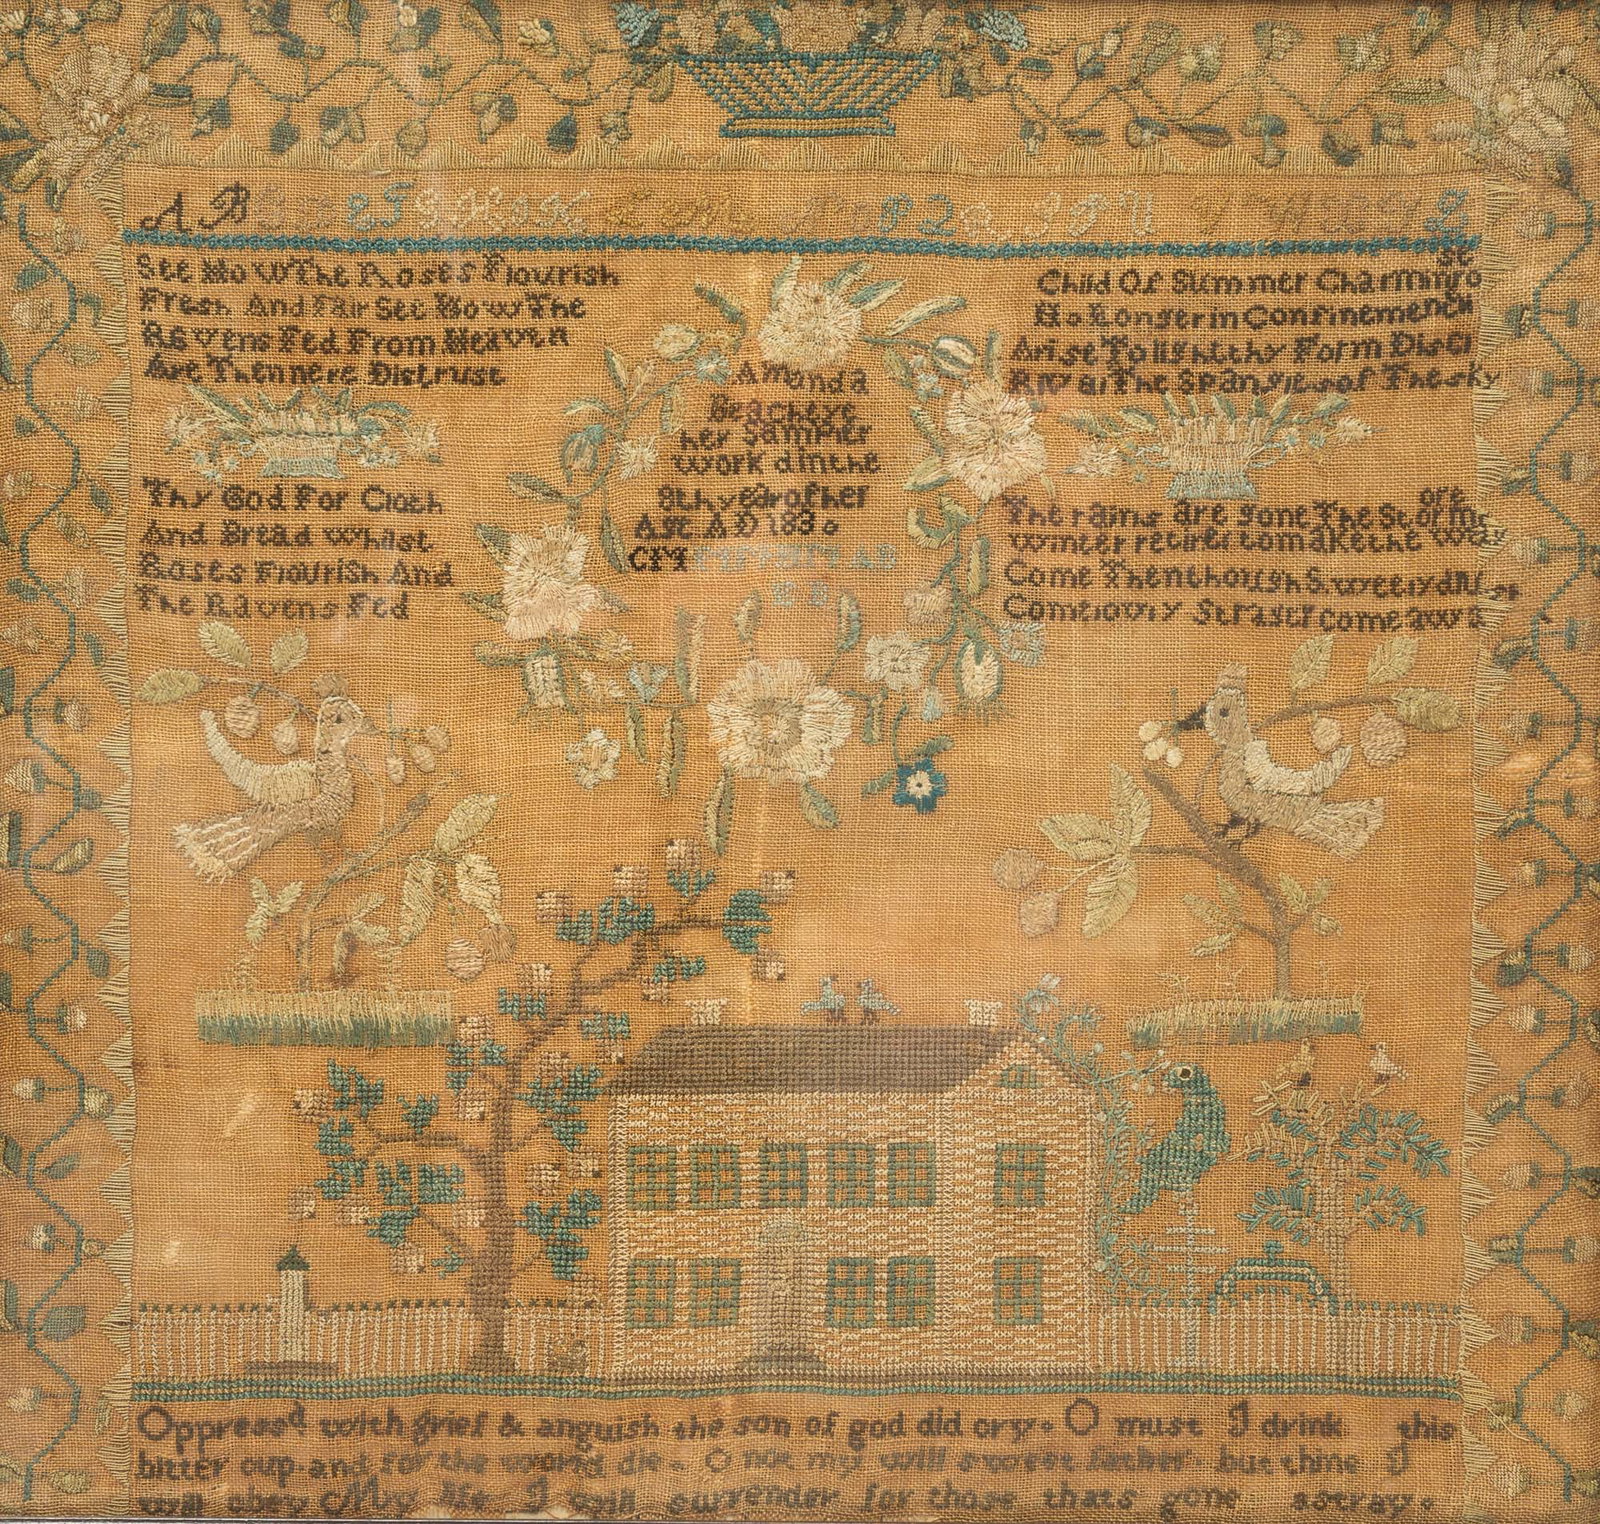 A B C D E F G H I K L M N O P Q R S T U V W X Y Z
See How The Roses Flourish
Fresh And Fair See How The
Ravens Fed From Heaven
Are Then nere Distrust
Thy God For Cloth
And Bread Whilst
Roses Flourish And
The Ravens Fed
Amanda
her Sammer
work d in the
8th year of her
Age AD 1830
CFM
st
Child Of Summer Charming ro
No Longer in Confinement
Arise To light thy Form
Rival The Spangles of The sky
ore
The rains are gone The Storms
winter retires to make the way
Come Then though Sweetly
Come come awa
Oppress.d with grief & anguish the son of god did cry. O must I drink this
bitter cup. and for the world die. O not my will sweet father. but thine I
will obey My life I will surrender for those thats gone astray.